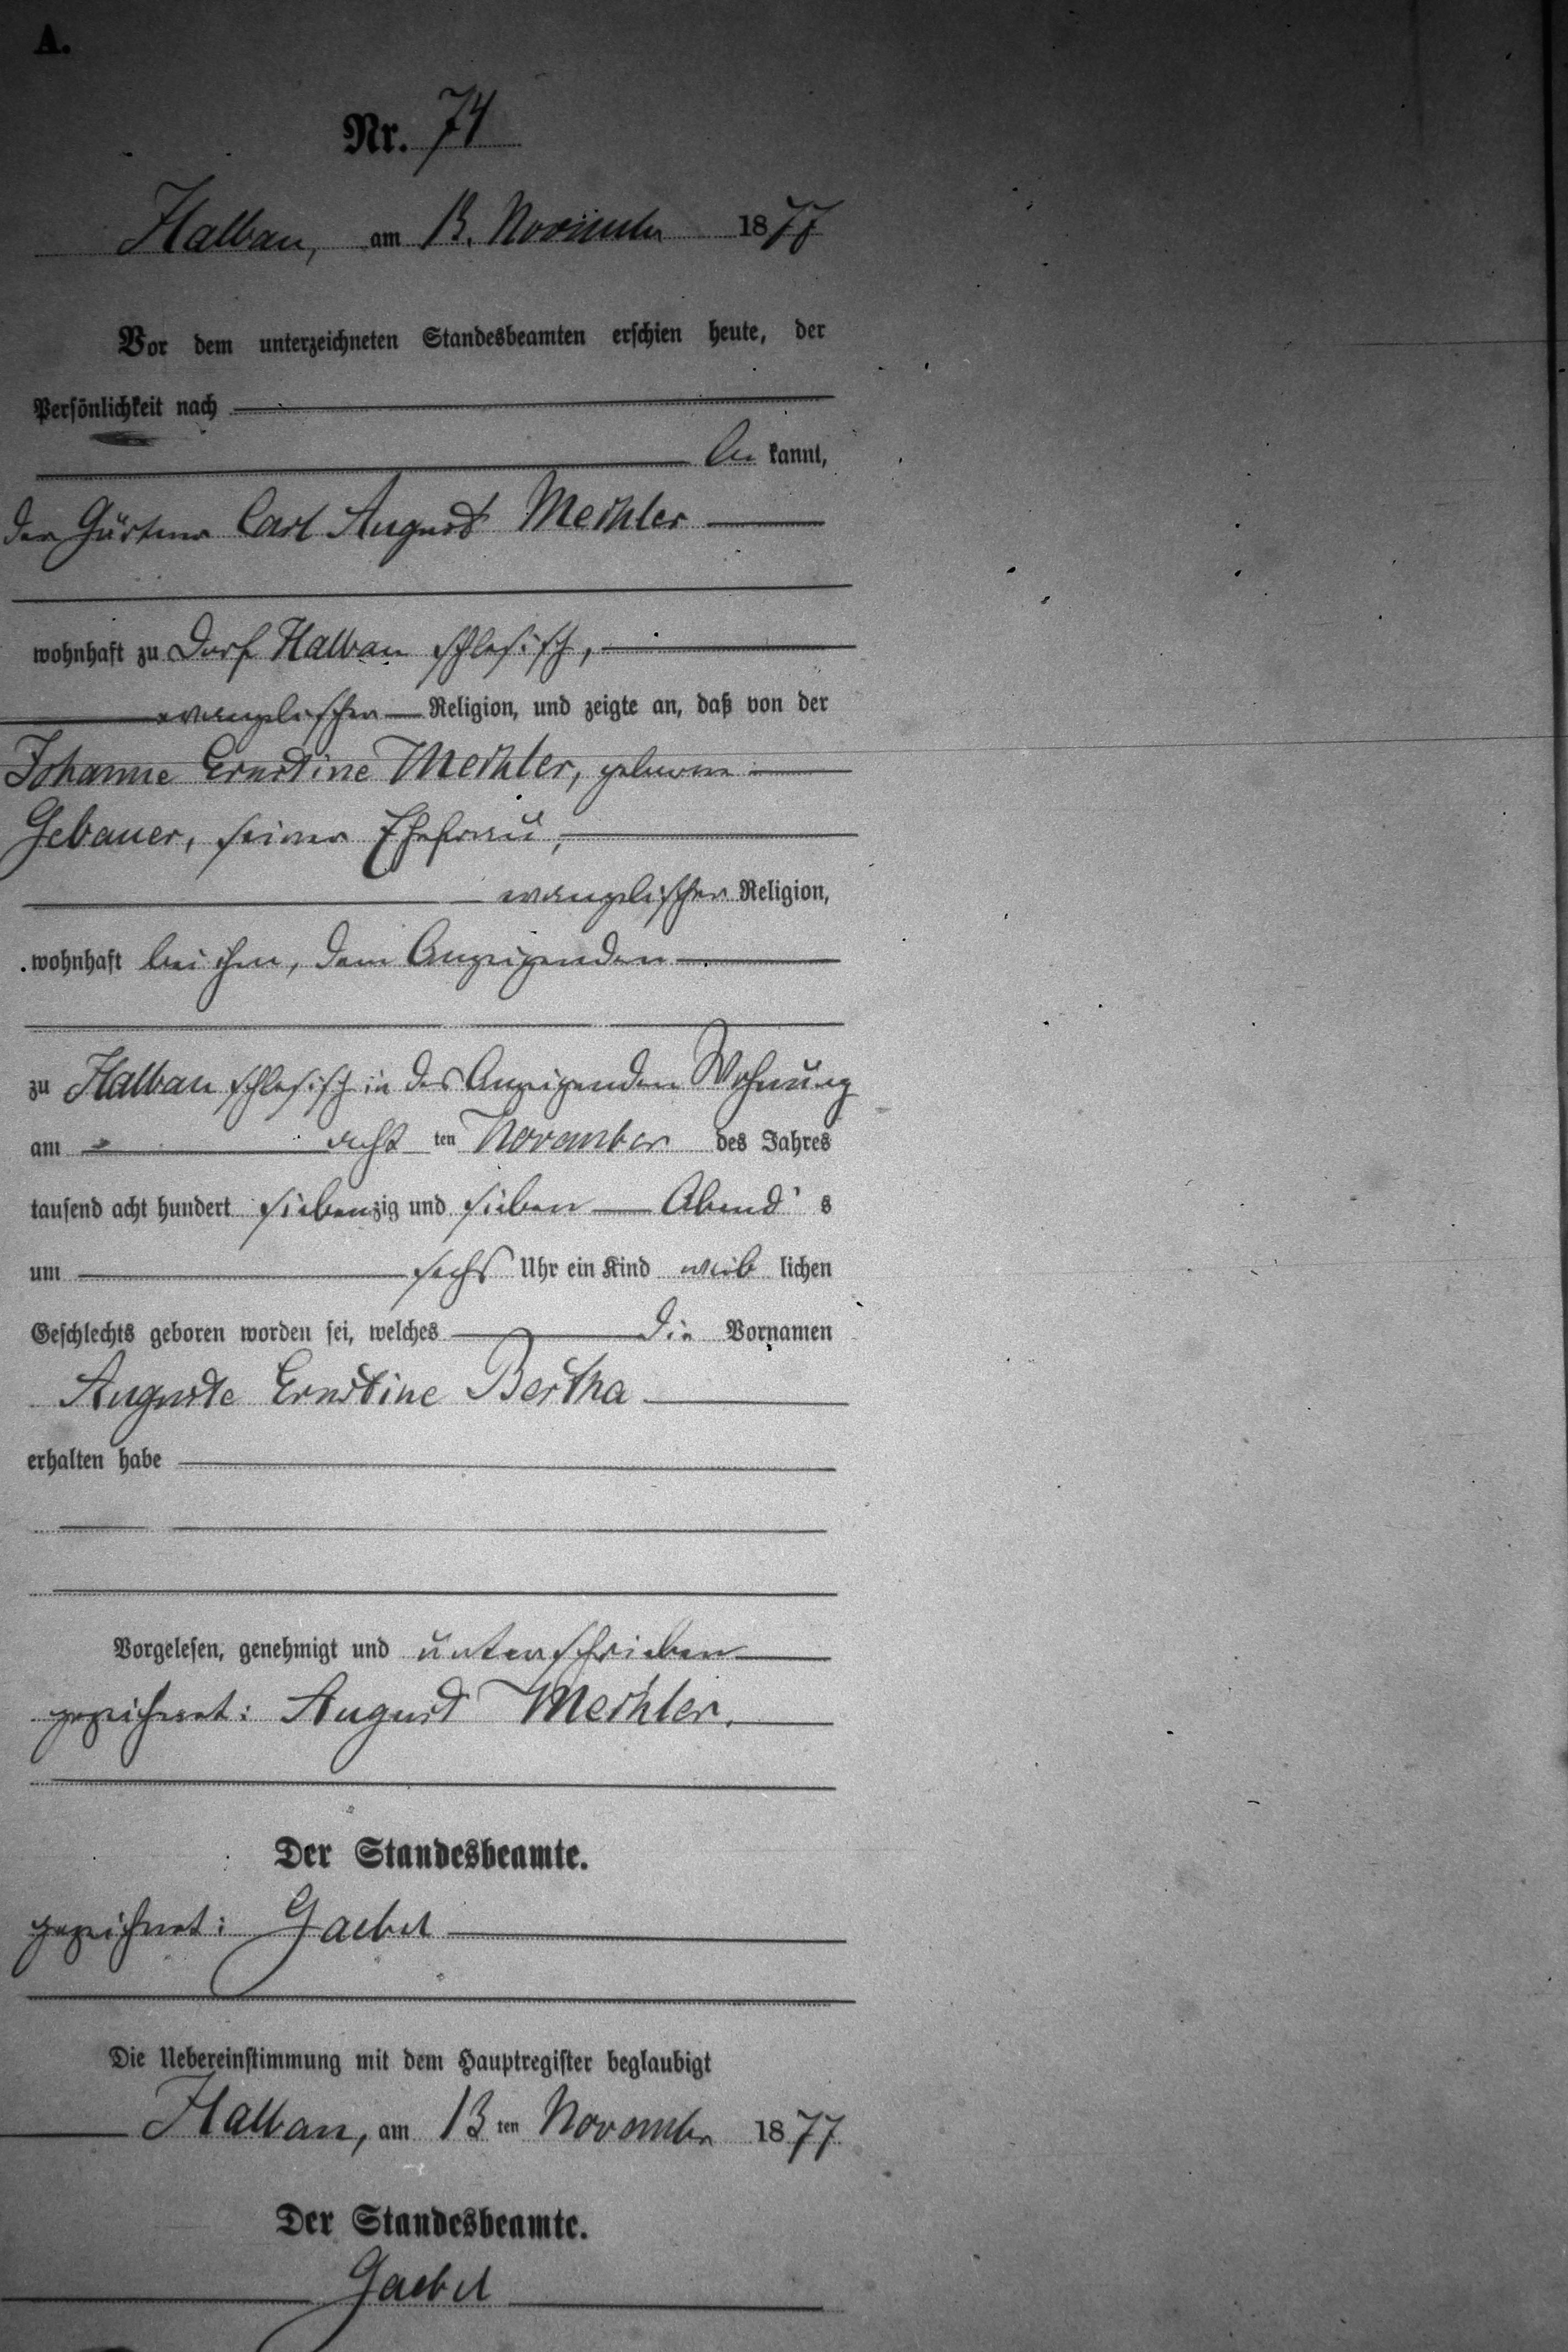 A.
Nr. 74
Halbau, am 13. November 1877
Vor dem unterzeichneten Standesbeamten erschien heute, der
Persönlichkeit nach
be kannt,
der Gärtner Carl August
wohnhaft zu Dorf Halbau schlesisch,
evangelischer Religion, und zeigte an, daß von der
Johanne Ernestine geborene
Gebauer, seiner Ehefrau,
evangelischer Religion,
wohnhaft bei ihm, dem Anzeigenden
zu Halbau schlesisch in des Anzeigenden Wohnung
am acht ten November des Jahres
tausend acht hundert siebenzig und sieben Abend s
um sechs Uhr ein Kind weib lichen
Geschlechts geboren worden sei, welches die Vornamen
Auguste Ernestine Bertha
erhalten habe
Vorgelesen, genehmigt und unterschrieben
gezeichnet: August
Der Standesbeamte.
gezeichnet: Gaebel
Die Uebereinstimmung mit dem Hauptregister beglaubigt
Halbau, am 13 ten November 1877
Der Standesbeamte.
Gaebel